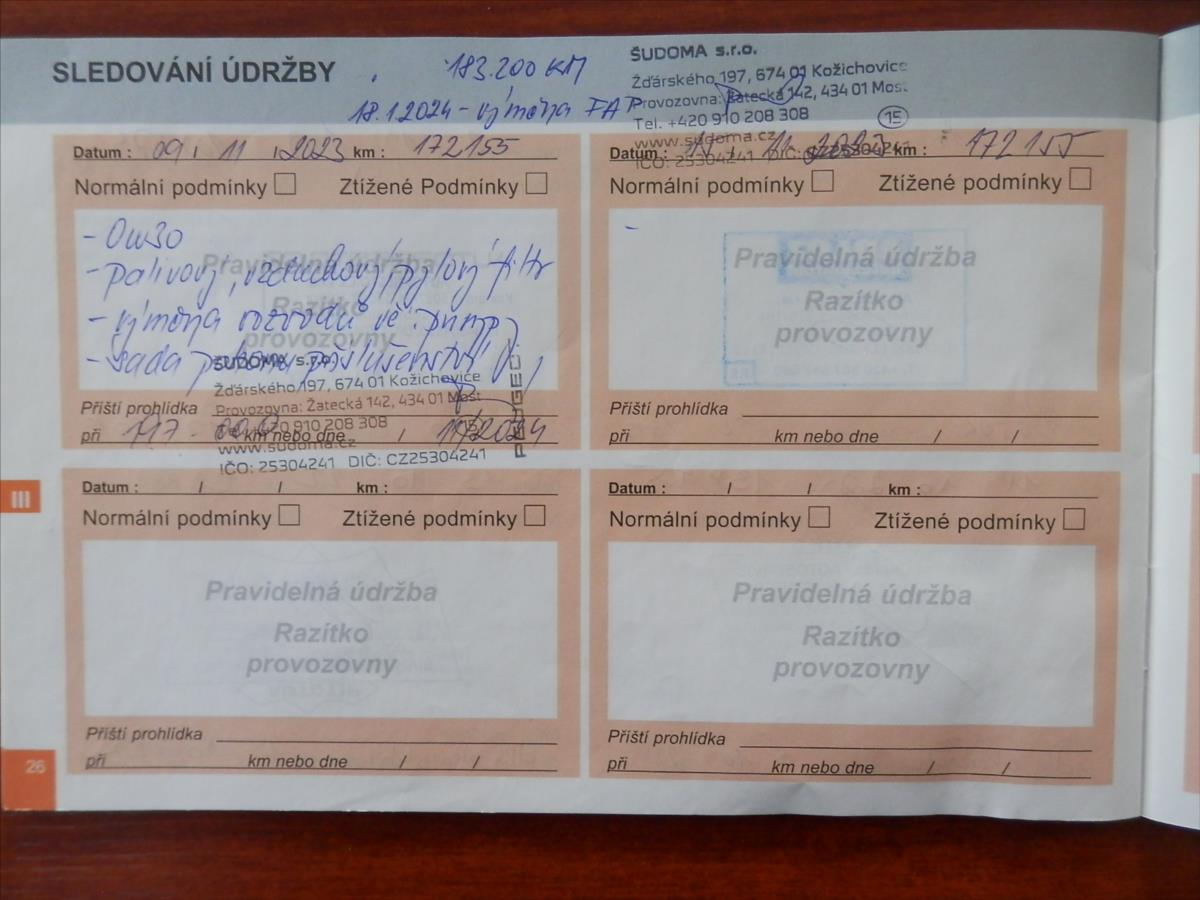 SLEDOVÁNÍ ÚDRŽBY
183.200 KM
18.1.2024 - výměna FAP
ŠUDOMA s.r.o.
Žďárského 197, 674 01 Kožichovice
Provozovna: Žatecká 142, 434 01 Most
Tel. +420 910 208 308
15
www.sudoma.cz
IČO: 25304241 DIČ: CZ25304241
Datum : 09 / 11 / 2023 km : 172155
Normální podmínky Ztížené Podmínky
- 0W30
- palivový, vzduchový, pylový filtr
- výměna rozvodů vč. pumpy
- sada příslušenství
Pravidelná údržba
Razítko
provozovny
ŠUDOMA s.r.o.
Žďárského 197, 674 01 Kožichovice
Provozovna: Žatecká 142, 434 01 Most
Tel. +420 910 208 308
15
www.sudoma.cz
IČO: 25304241 DIČ: CZ25304241
PEUGEOT
Příští prohlídka
při 197 000 km nebo dne / 11/2024
Datum : / / km : 172155
Normální podmínky Ztížené Podmínky
-
Pravidelná údržba
Razítko
provozovny
Příští prohlídka
při km nebo dne / /
III
Datum : / / km :
Normální podmínky Ztížené podmínky
Pravidelná údržba
Razítko
provozovny
Příští prohlídka
při km nebo dne / /
Datum : / / km :
Normální podmínky Ztížené podmínky
Pravidelná údržba
Razítko
provozovny
Příští prohlídka
při km nebo dne / /
26